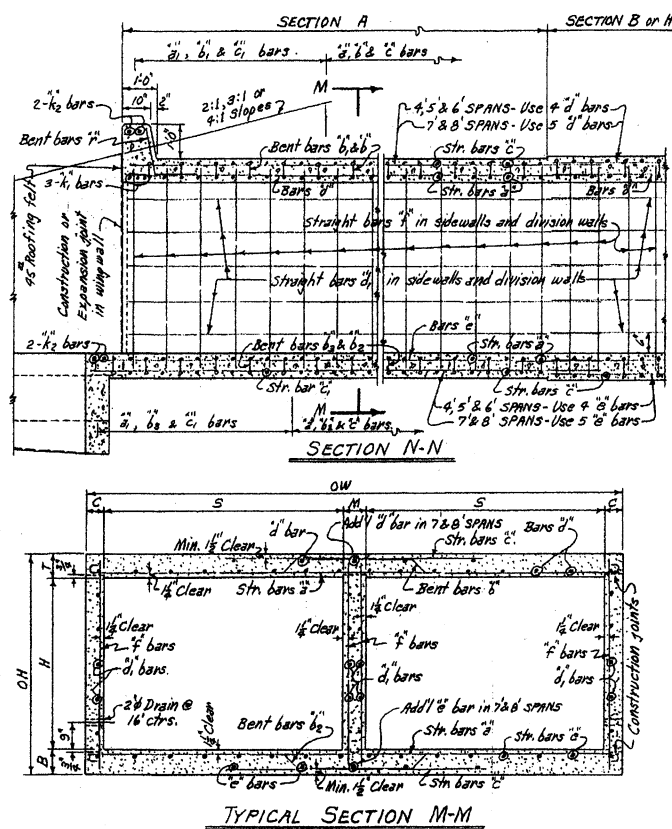 SECTION A
SECTION B or
"a₁", "b₁" & "c₁" bars.
"a", "b" & "c" bars
1'-0"
10"
2"
M
2-"k₂" bars
2:1, 3:1 or
4:1 slopes
4', 5' & 6' SPANS - Use 4 "d" bars
7' & 8' SPANS - Use 5 "d" bars
Bent bars "r"
1'-0"
Bent bars "b₁" & "b"
Str. bars "c"
3-k₁ bars
Bars "d"
Str. bars "a"
Bars "d"
45# Roofing felt
Construction or
Expansion joint
in wing wall
Straight bars "f" in sidewalls and division walls
Straight bars "d₁" in sidewalls and division walls
Bars "e"
6"
2-"k₂" bars
Bent bars "b₃" & "b₂"
Str. bars "a"
Str. bar "c₁"
Str. bars "c"
M
4', 5' & 6' SPANS - Use 4 "e" bars
7' & 8' SPANS - Use 5 "e" bars
"a₁", "b₃" & "c₁" bars
"a", "b₂" & "c" bars
SECTION N-N
OW
C
S
M
S
C
"d" bar
Add'l "d" bar in 7' & 8' SPANS
Bars "d"
Min. 1½" Clear
Str. bars "c"
T
1¼" Clear
Str. bars "a"
Bent bars "b"
1¼" Clear
1¼" Clear
1¼" Clear
1¼" Clear
OH
H
"f" bars
"f" bars
"f" bars
"d₁" bars.
"d₁" bars
"d₁" bars
Construction joints
2"ϕ Drain @
16' ctrs.
9"
1¼" Clear
Add'l "e" bar in 7' & 8' SPANS
Bent bars "b₂"
Str. bars "a"
Str. bars "a"
B
"e" bars
Min. 1½" Clear
Str. bars "c"
TYPICAL SECTION M-M